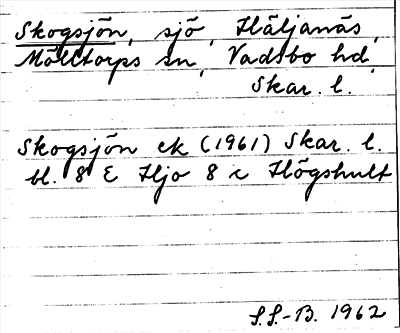 Skogsjön, sjö, Häljanäs,
Mölltorps sn, Vadsbo hd,
Skar. l.
Skogsjön ek (1961) Skar. l.
bl. 8 E Hjo 8 c Högshult
S.S.-B. 1962